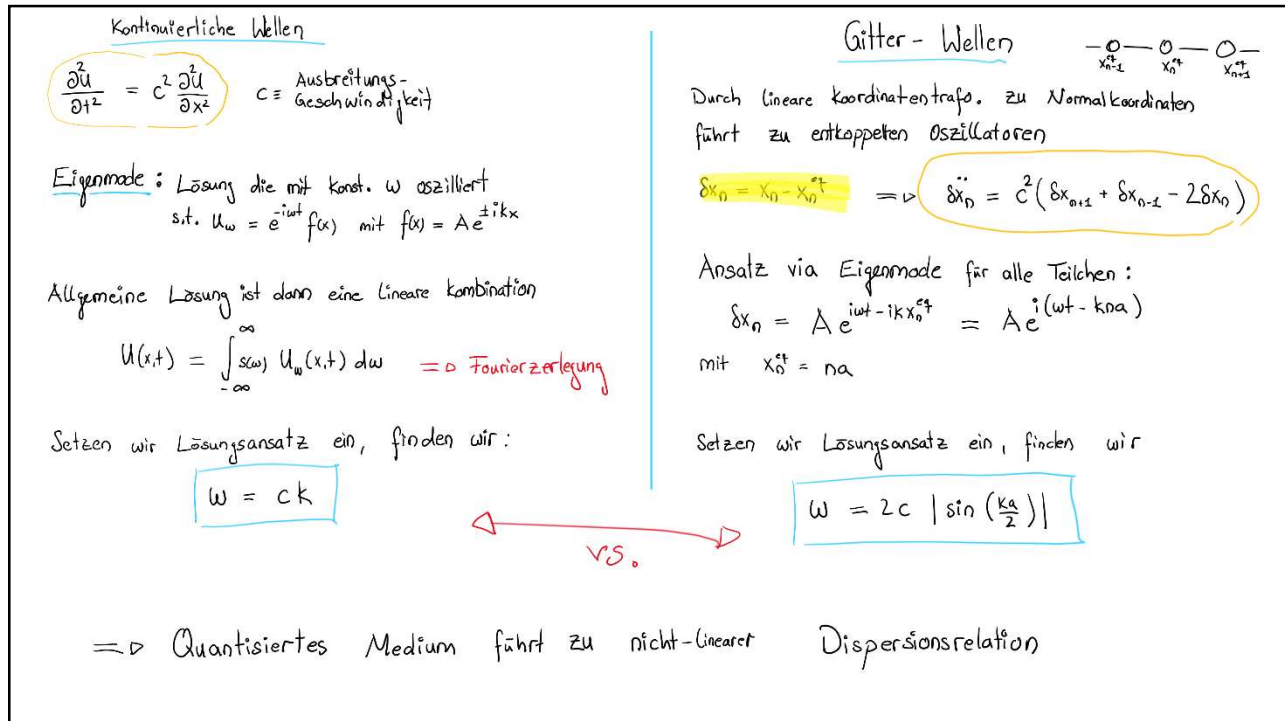 Kontinuierliche Wellen
∂²u/∂t² = c² ∂²u/∂x²   c ≡ Ausbreitungs-
Geschwindigkeit
Eigenmode: Lösung die mit konst. ω oszilliert
s.t. u_ω = e^{-iωt} f(x) mit f(x) = A e^{±ikx}
Allgemeine Lösung ist dann eine lineare kombination
U(x,t) = ∫_{-∞}^{∞} s(ω) U_ω(x,t) dω => Fourierzerlegung
Setzen wir Lösungsansatz ein, finden wir:
ω = ck
Gitter - Wellen
x_{n-1}^{eq} x_n^{eq} x_{n+1}^{eq}
Durch lineare Koordinatentrafo. zu Normalkoordinaten
führt zu entkoppelten Oszillatoren
δx_n = x_n - x_n^{eq} => δẍ_n = c² (δx_{n+1} + δx_{n-1} - 2δx_n)
Ansatz via Eigenmode für alle Teilchen:
δx_n = A e^{iωt - ikx_n^{eq}} = A e^{i(ωt - kna)}
mit x_n^{eq} = na
Setzen wir Lösungsansatz ein, finden wir
ω = 2c |sin(ka/2)|
vs.
=> Quantisiertes Medium führt zu nicht-linearer Dispersionsrelation